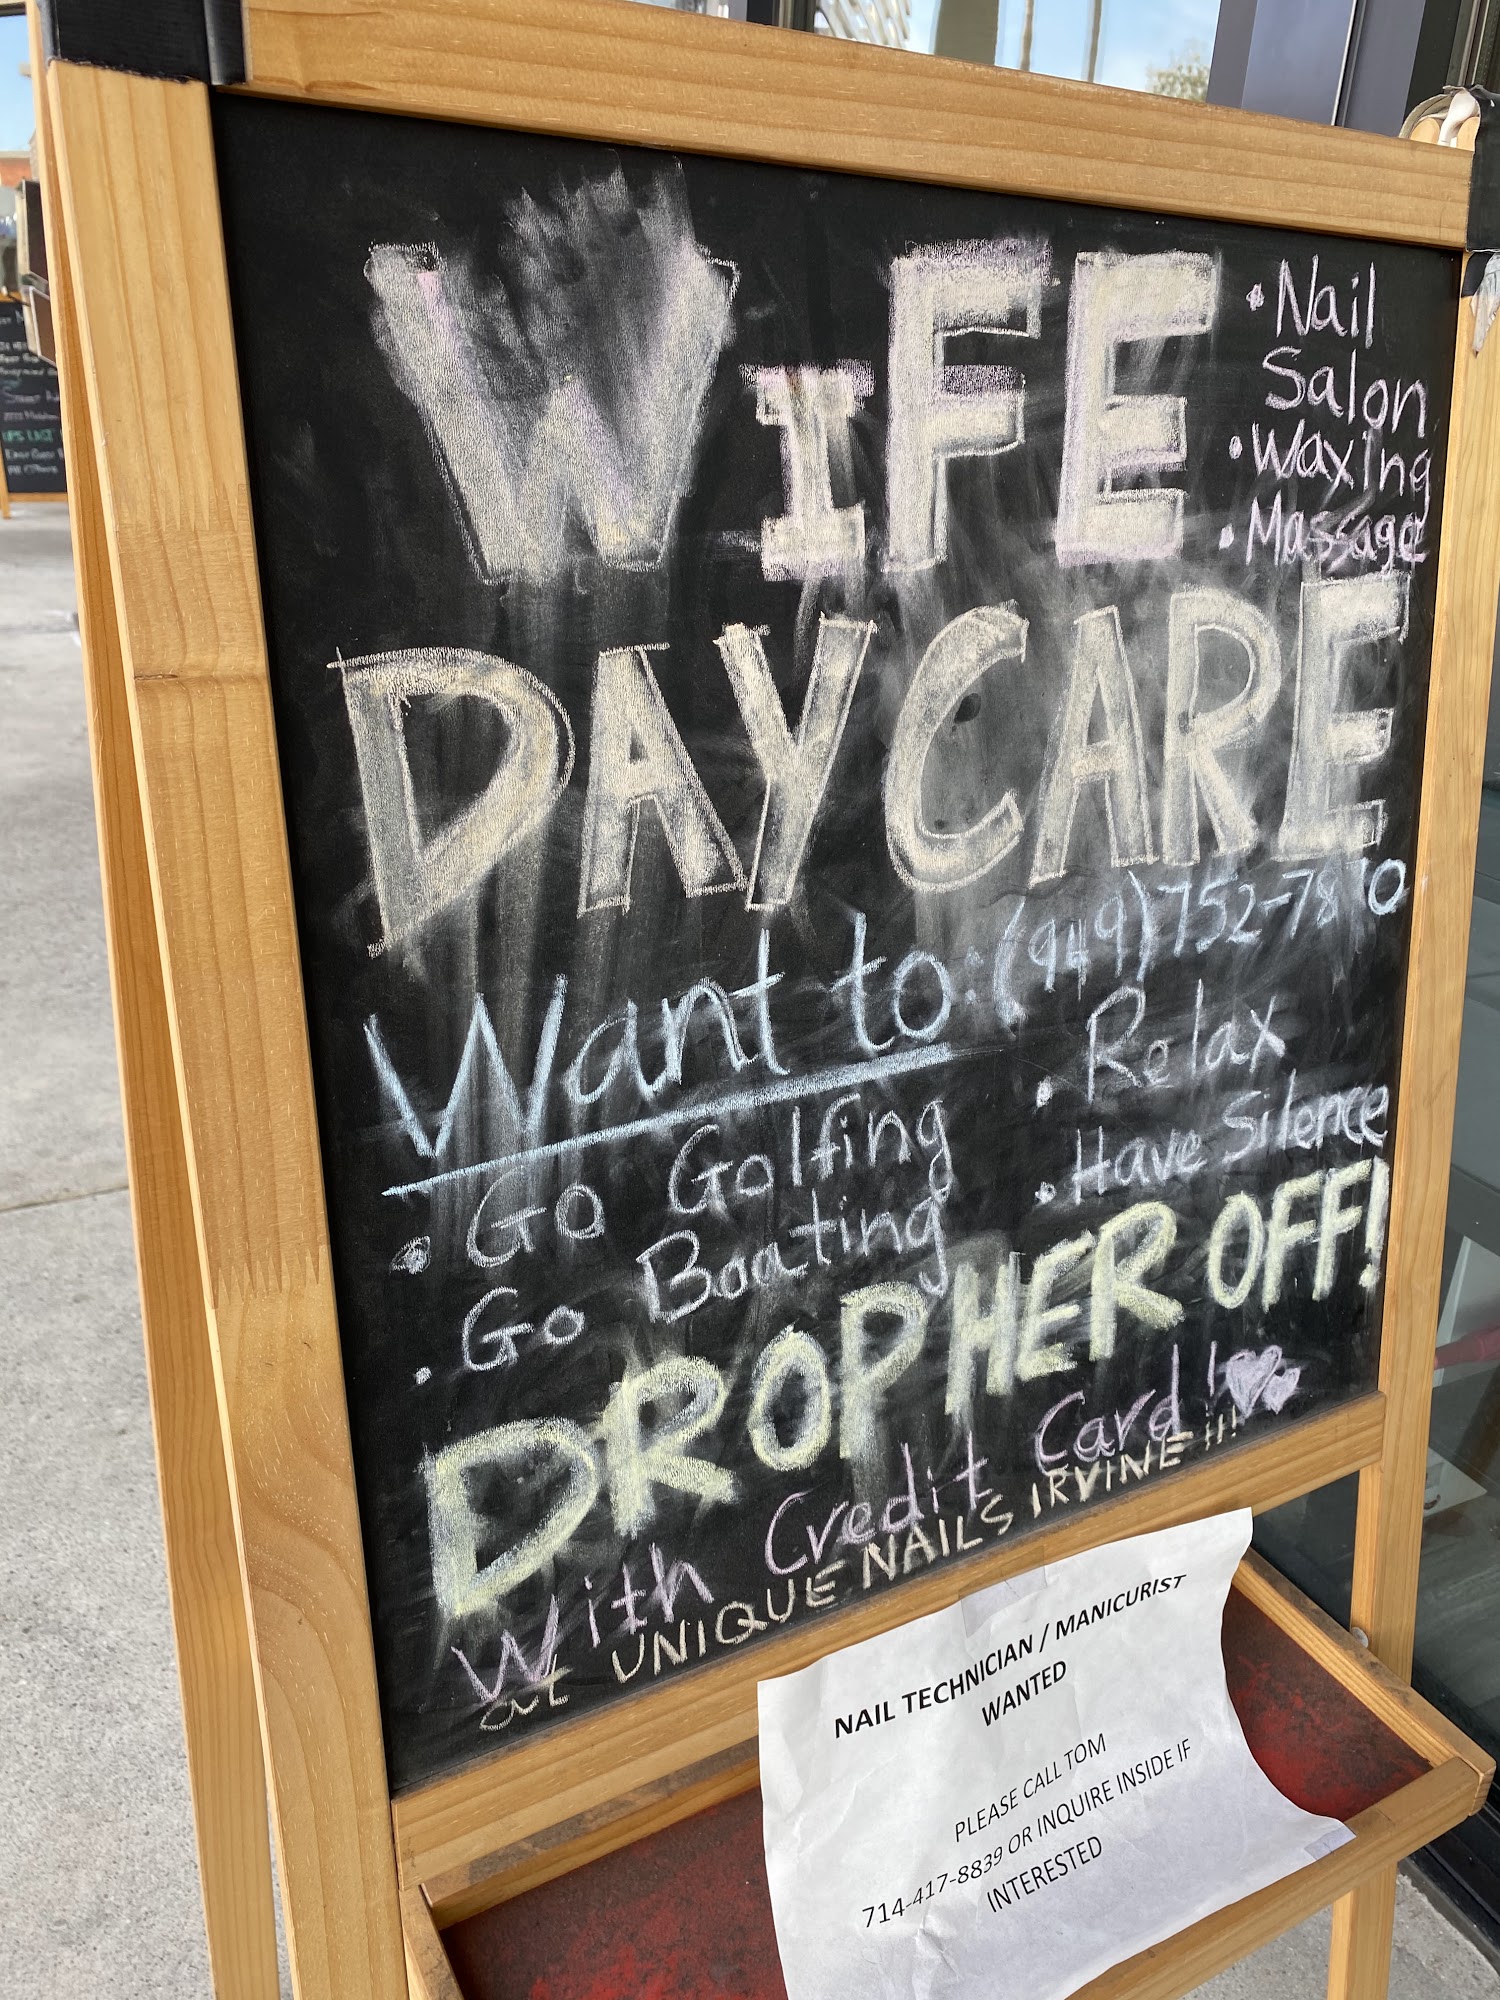 WiFE
• Nail
Salon
• Waxing
• Massage
DAYCARE
Want to: (949) 752-7870
• Go Golfing
• Go Boating
• Relax
• Have Silence
DROP HER OFF!
With Credit Card!
at UNIQUE NAILS IRVINE!!!
NAIL TECHNICIAN / MANICURIST
WANTED
PLEASE CALL TOM
714-417-8839 OR INQUIRE INSIDE IF
INTERESTED